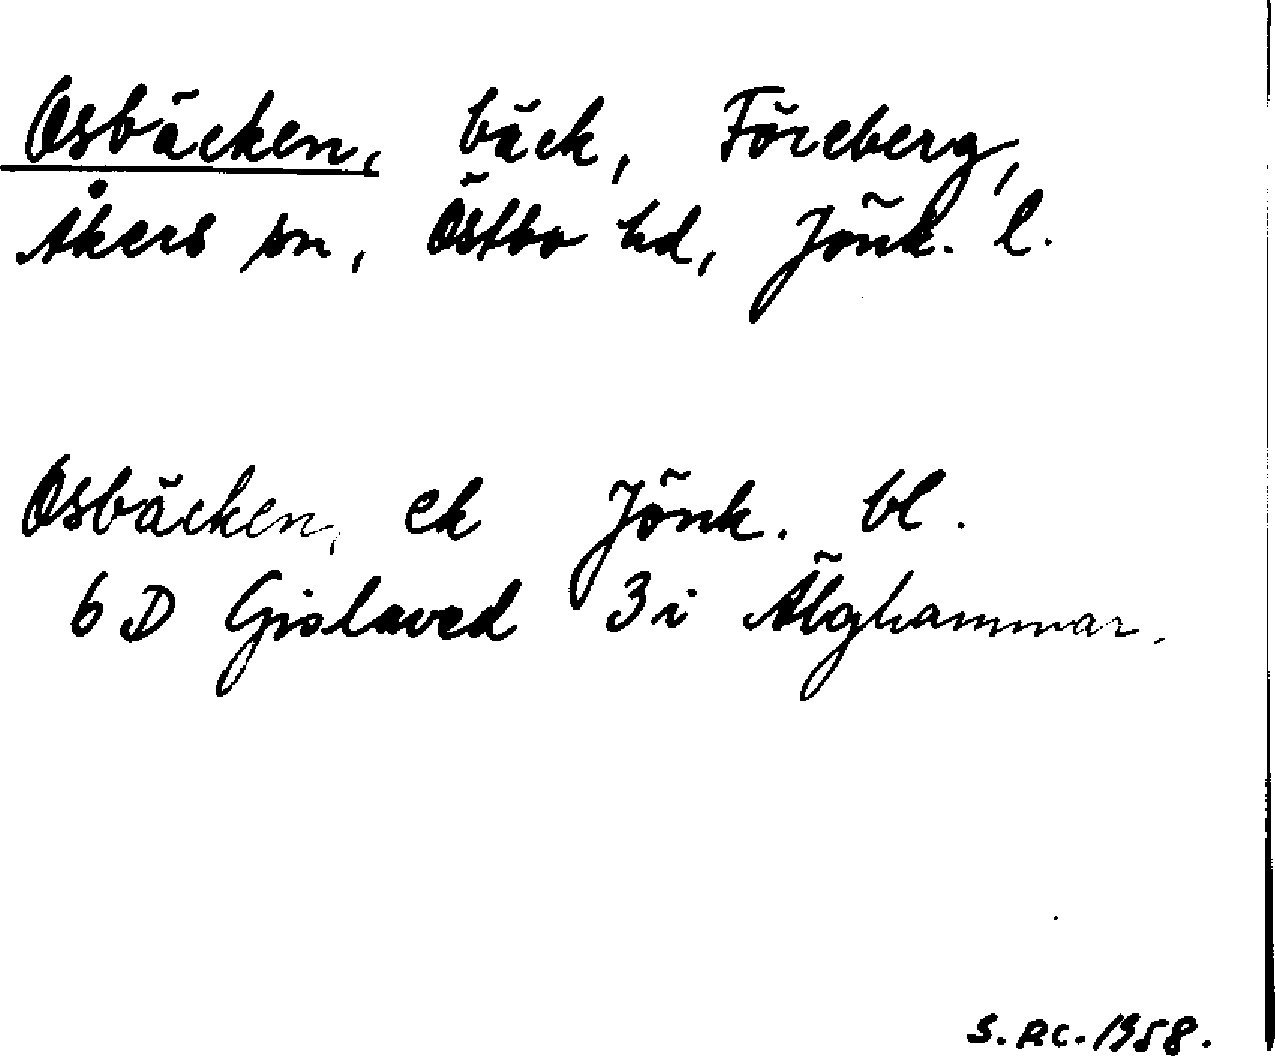 Osbäcken, bäck, Föreberg,
Åkers sn, Östbo hd, Jönk. l.
Osbäcken, ek Jönk. bl.
6 D Gislaved 3i Älghammar.
S.RC.1958.